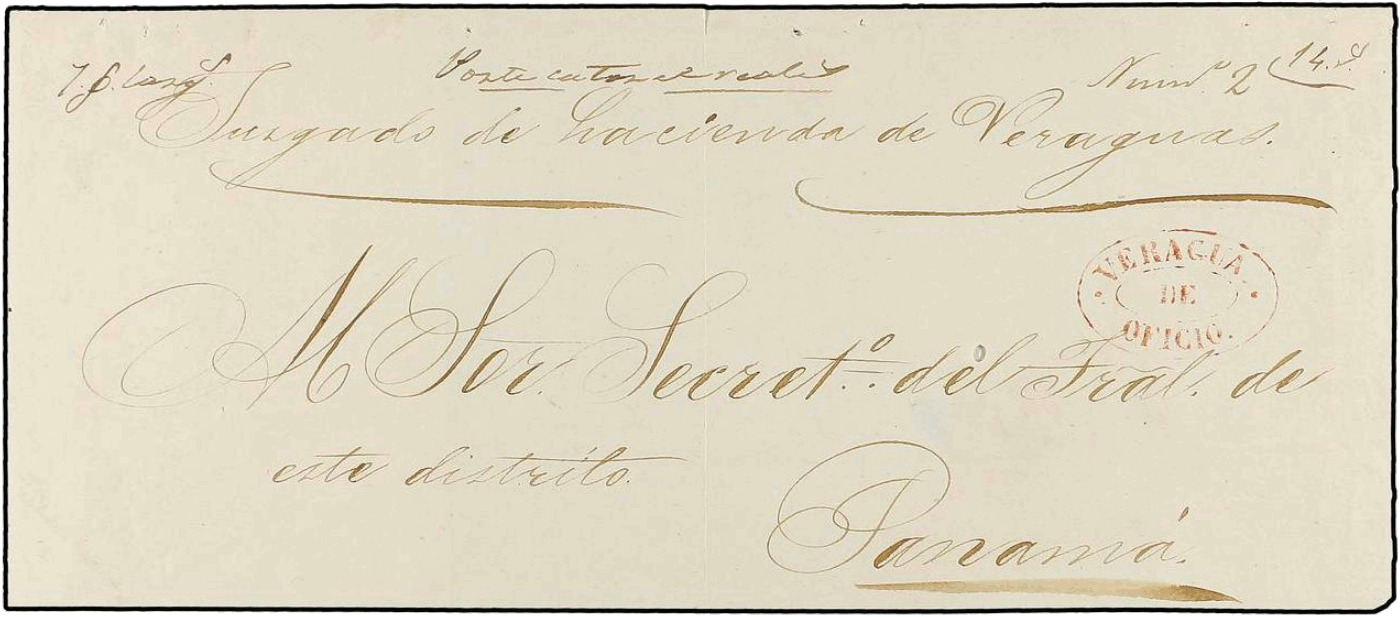 Porte catorce reales
Num.º 2 14 r.s
Juzgado de hacienda de Veraguas.
VERAGUA
DE
OFICIO.
Al Sor. Secret.º del Tral. de
este distrito.
Panamá.